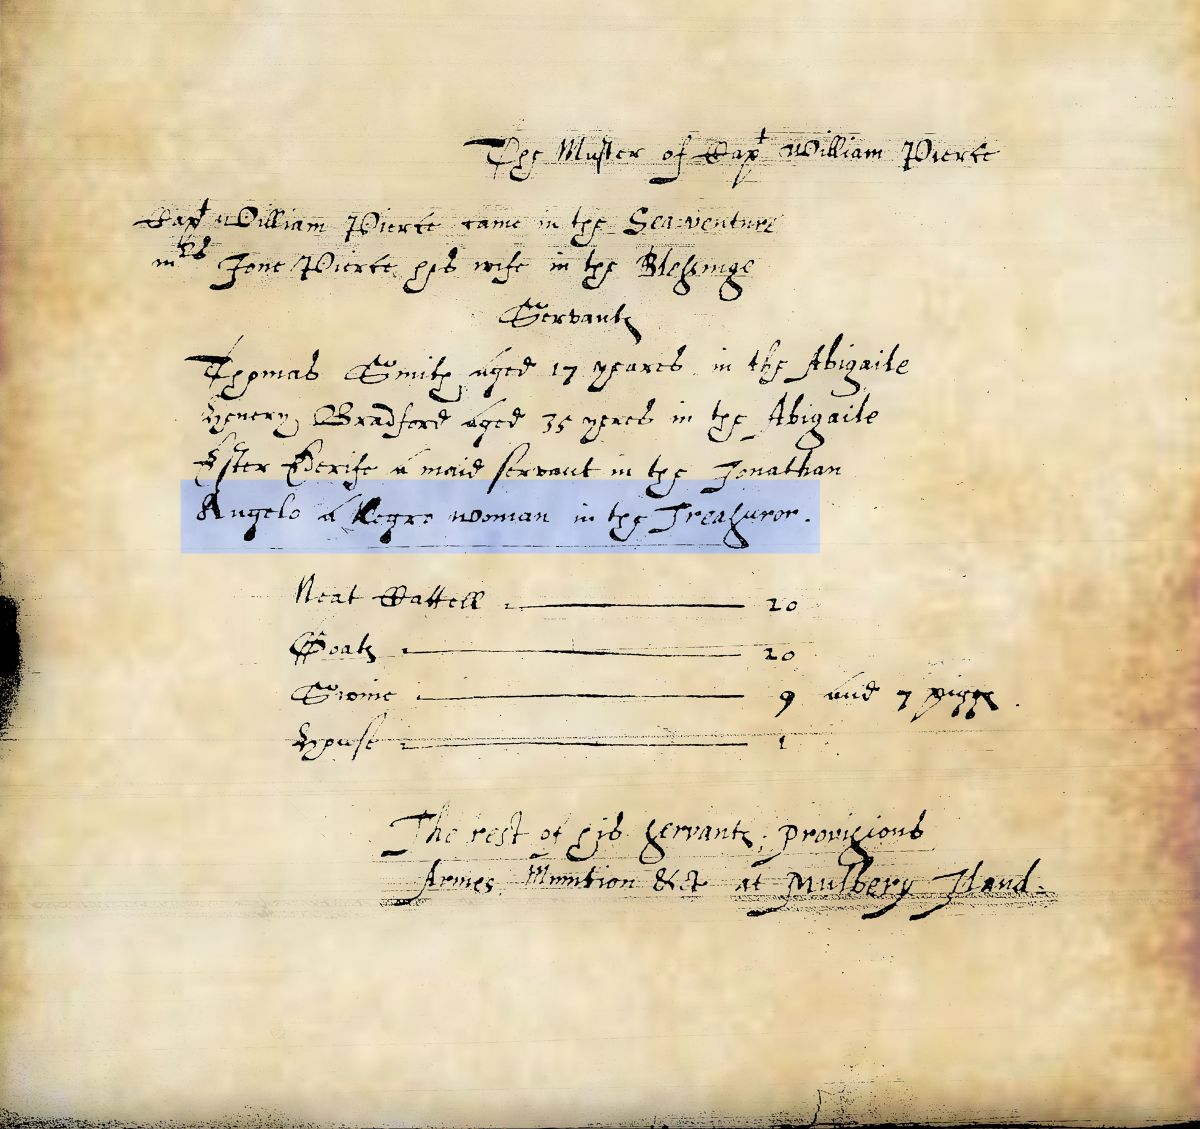 The Muster of Capt William Pierce
Capt William Pierce came in the Sea-venture
mrs Jone Pierce his wife in the Blessinge
Servants
Thomas Smith aged 17 yeares in the Abigaile
Henery Bradford aged 35 yeres in the Abigaile
Ester Ederife a maid servant in the Jonathan
Angelo a Negro woman in the Treasuror.
Neat Cattell 20
Goats 20
Swine 9 and 7 piggs.
House 1
The rest of his servants, provisions
Armes, Munition &ct at Mulbery Iland.